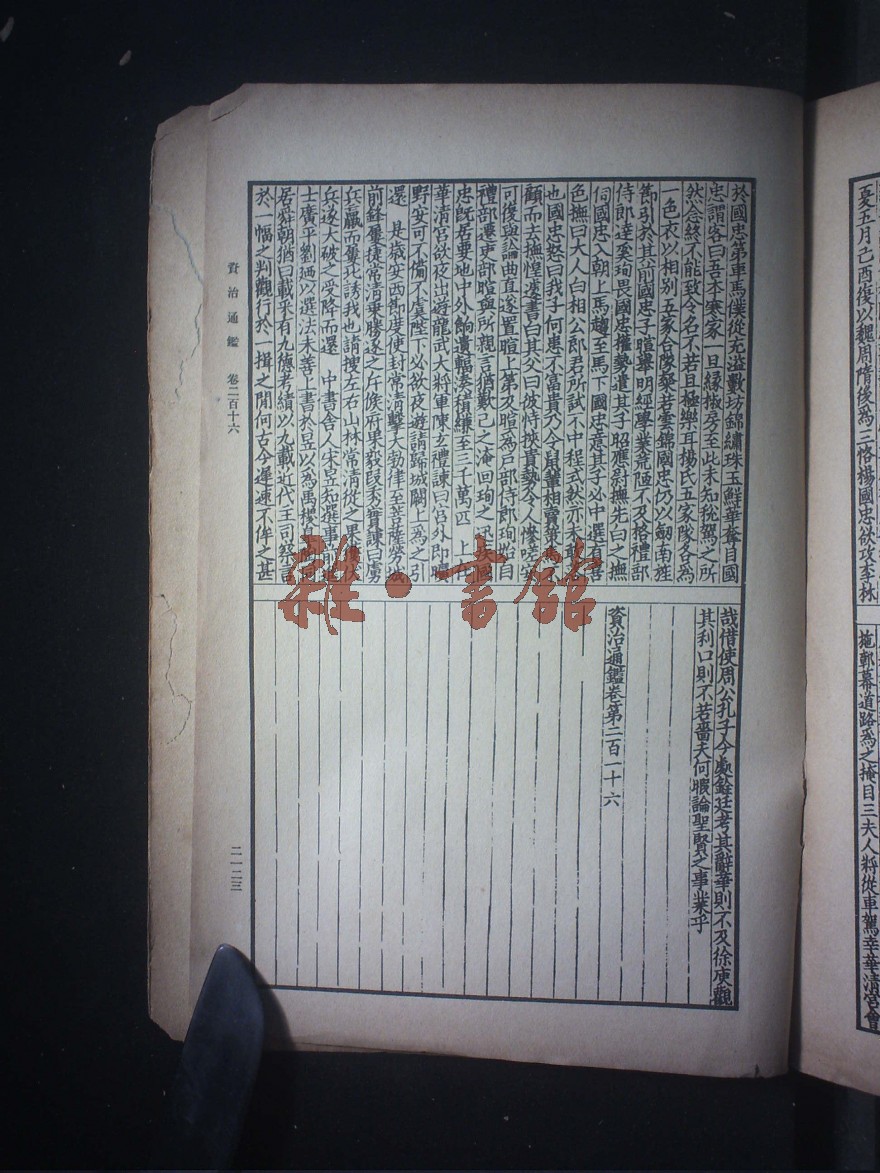 於國忠第車馬僕從充溢數坊錦繡珠玉鮮華奪目國
忠謂客曰吾本寒家一旦緣椒房至此未知稅駕之所
然念終不能致令名不若且極樂耳楊氏五家隊各爲
一色衣以相別五家合隊粲若雲錦國忠仍以劒南旌
節引於其前國忠子暄舉明經學業荒陋不及格禮部
侍郎達奚珣畏國忠權勢遣其子昭應尉撫先白之撫
伺國忠入朝上馬趨至馬下國忠意其子必中選有喜
色撫曰大人白相公郎君所試不中程式然亦未敢
也國忠怒曰我子何患不富貴乃令鼠輩相賣策馬不
顧而去撫惶遽書白其父曰彼恃挾貴勢令人慘嗟安
可復與論曲直遂置暄上第及暄爲戶部侍郎珣始自
禮部遷吏部暄與所親言猶歎己之淹回珣之迅疾國
忠旣居要地中外餉遺輻湊積縑至三千萬匹 上在
華清宮欲夜出遊龍武大將軍陳玄禮諫曰宮外卽曠
野安可不備不虞陛下必欲夜遊請歸城闕上爲之引
還 是歲安西節度使封常清擊大勃律至菩薩勞城
前鋒屢捷常清乘勝逐之斥候府果毅段秀實諫曰虜
兵羸而屢北誘我也請搜左右山林常清從之果獲伏
兵遂大破之受降而還 中書舍人宋昱知選事前進
士廣平劉迺以選法未善上書於昱以爲禹稷皋陶同
居舜朝猶曰載采有九德考績以九載近代主司察言
於一幅之判觀行於一揖之間何古今遲速不侔之甚
哉借使周公孔子今處銓廷考其辭華則不及徐庾觀
其利口則不若嗇夫何暇論聖賢之事業乎
資治通鑑卷第二百一十六
資治通鑑 卷二百十六
二一二三
雜·書館
夏五月己酉復以魏周隋後爲三恪楊國忠欲攻李林
施鄣幕道路爲之掩目三夫人將從車駕幸華清宮會